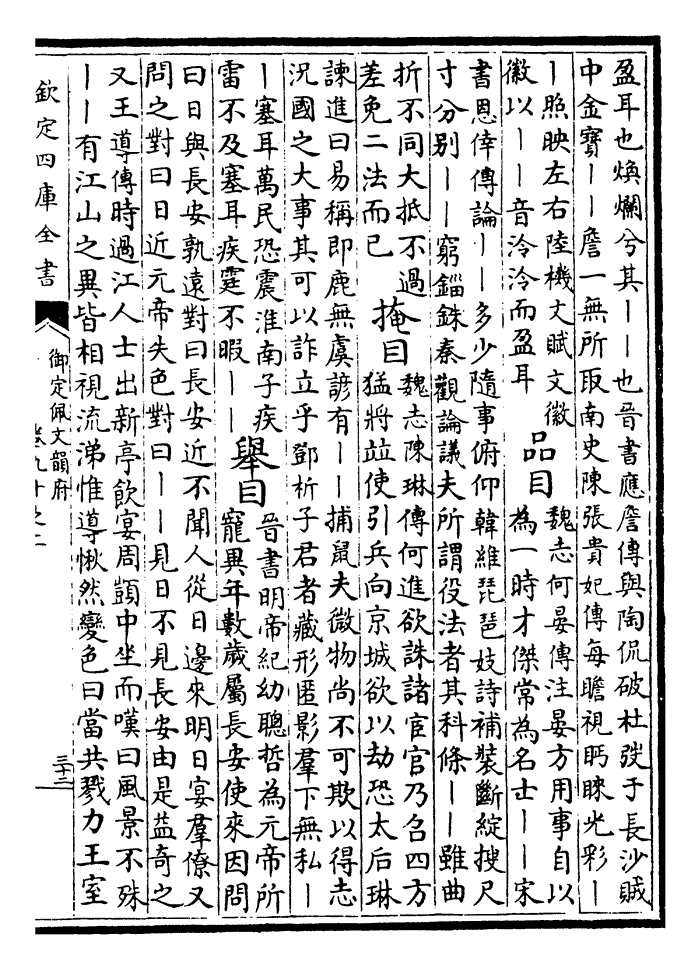 盈耳也煥爛兮其——也晉書應詹傳與陶侃破杜弢于長沙賊
中金寶——詹一無所取南史陳張貴妃傳每瞻視眄睞光彩—
—照映左右陸機文賦文徽
徽以——音泠泠而盈耳
品目
魏志何晏傳注晏方用事自以
為一時才傑常為名士——宋
書恩倖傳論——多少隨事俯仰韓維琵琶妓詩補裝斷綻搜尺
寸分别——窮錙銖秦觀論議夫所謂役法者其科條——雖曲
折不同大抵不過
差免二法而已
掩目
魏志陳琳傳何進欲誅諸宦官乃召四方
猛將竝使引兵向京城欲以劫恐太后琳
諫進曰易稱即鹿無虞諺有——捕鼠夫微物尚不可欺以得志
況國之大事其可以詐立乎鄧析子君者藏形匿影羣下無私—
—塞耳萬民恐震淮南子疾
雷不及塞耳疾霆不暇——
舉目
晉書明帝紀幼聰哲為元帝所
寵異年數歲屬長安使來因問
曰日與長安孰遠對曰長安近不聞人從日邊來明日宴羣僚又
問之對曰日近元帝失色對曰——見日不見長安由是益奇之
又王導傳時過江人士出新亭飲宴周顗中坐而嘆曰風景不殊
——有江山之異皆相視流涕惟導愀然變色曰當共戮力王室
欽定四庫全書
御定佩文韻府
卷九十之二
三十二